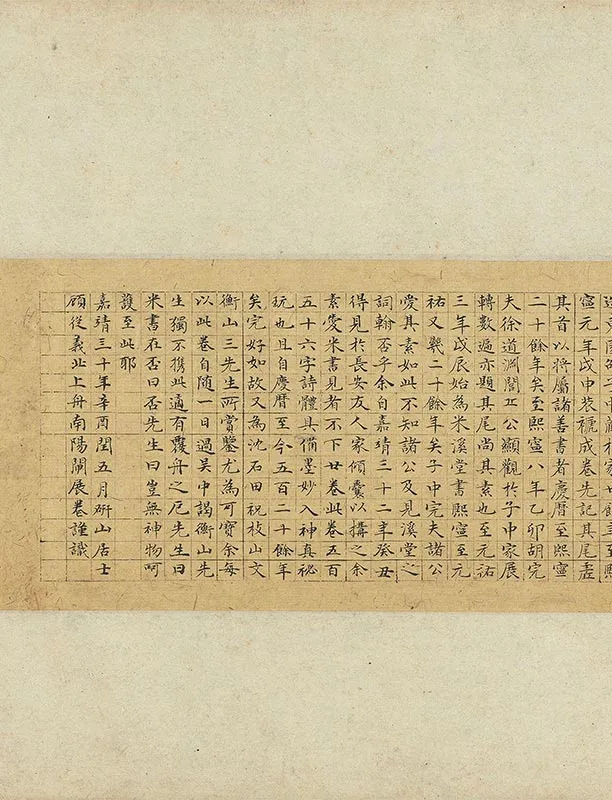 寧元年戊申裝褫成卷先記其尾虛
其首以將屬諸善書者慶曆至熙寧
二十餘年矣至熙寧八年乙卯胡完
夫徐道淵閭丘公顯觀於子中家展
轉數過亦題其尾尚其素也至元祐
三年戊辰始為米溪堂書熙寧至元
祐又幾二十餘年矣子中完夫諸公
愛其素如此不知諸公及見溪堂之
詞翰否乎余自嘉靖三十二年癸丑
得見於長安友人家傾囊以購之余
素愛米書見者不下廿卷此卷五百
五十六字詩體具備墨妙入神真祕
玩也且自慶曆至今五百二十餘年
矣完好如故又為沈石田祝枝山文
衡山三先生所賞鑒尤為可寶余每
以此卷自隨一日過吳中謁衡山先
生獨不攜此適有覆舟之厄先生曰
米書在否曰否先生曰豈無神物呵
護至此耶
嘉靖三十年辛酉閏五月研山居士
顧從義北上舟南陽閘展卷謹識